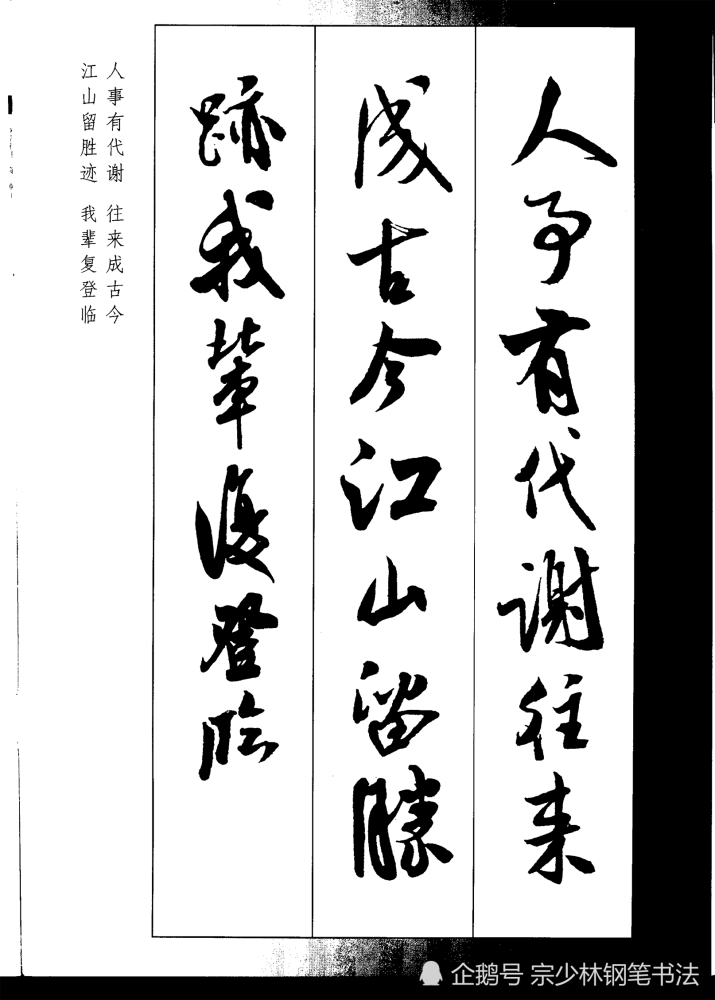 人事有代谢往来
成古今江山留勝
跡我輩復登臨
人事有代谢 往来成古今
江山留胜迹 我辈复登临
企鹅号 宗少林钢笔书法